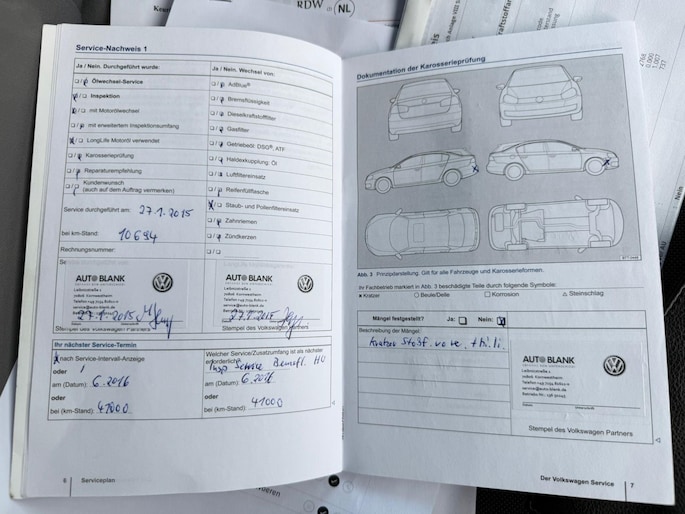 RDW
NL
Service-Nachweis 1
Ja / Nein. Durchgeführt wurde:
Ölwechsel-Service
Inspektion
mit Motorölwechsel
mit erweitertem Inspektionsumfang
LongLife Motoröl verwendet
Karosserieprüfung
Reparaturempfehlung
Kundenwunsch
(auch auf dem Auftrag vermerken)
Service durchgeführt am: 27.1.2015
bei km-Stand: 10694
Rechnungsnummer:
AUTO BLANK
70806 Kornwestheim
27.1.2015
Stempel des Volkswagen Partners
Ja / Nein. Wechsel von:
AdBlue®
Bremsflüssigkeit
Dieselkraftstofffilter
Gasfilter
Getriebeöl: DSG®, ATF
Haldexkupplung: Öl
Luftfiltereinsatz
Reifenfüllflasche
Staub- und Pollenfiltereinsatz
Zahnriemen
Zündkerzen
AUTO BLANK
27.1.2015
Stempel des Volkswagen Partners
Ihr nächster Service-Termin
nach Service-Intervall-Anzeige
oder
am (Datum): 6.2016
oder
bei (km-Stand): 41000
Welcher Service/Zusatzumfang ist als nächster
erforderlich?
Insp Service Bremsfl. HU
am (Datum): 6.2016
oder
bei (km-Stand): 41000
6
Serviceplan
Dokumentation der Karosserieprüfung
Abb. 3 Prinzipdarstellung. Gilt für alle Fahrzeuge und Karosserieformen.
Ihr Fachbetrieb markiert in Abb. 3 beschädigte Teile durch folgende Symbole:
x Kratzer
Beule/Delle
Korrosion
△ Steinschlag
Mängel festgestellt?
Ja:
Nein:
Beschreibung der Mängel:
Kratzer Stoßf. vo re. + hi li.
AUTO BLANK
70806 Kornwestheim
Stempel des Volkswagen Partners
Der Volkswagen Service
7